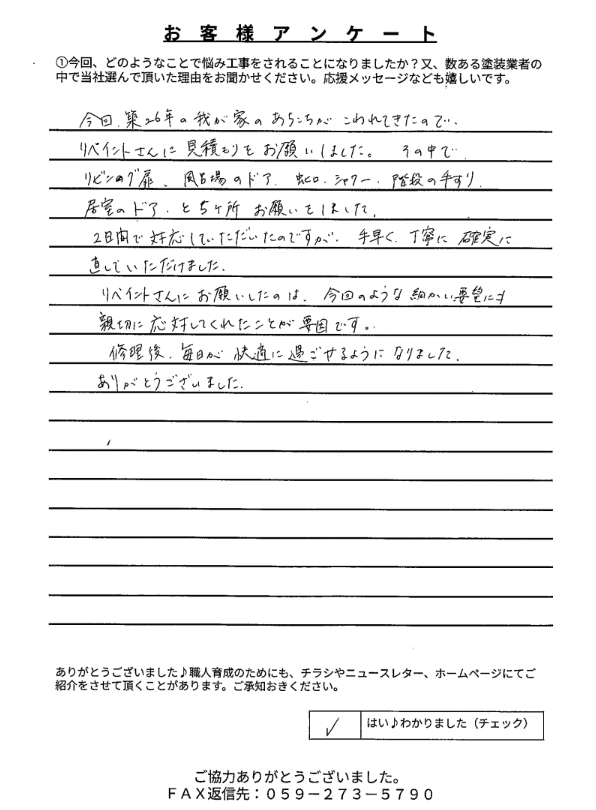 お客様アンケート
①今回、どのようなことで悩み工事をされることになりましたか？又、数ある塗装業者の
中で当社選んで頂いた理由をお聞かせください。応援メッセージなども嬉しいです。
今回、築26年の我が家のあちこちがこわれてきたので、
リペイントさんに見積もりをお願いしました。その中で
リビングの扉、風呂場のドア、蛇口、シャワー、階段の手すり、
居室のドア、と5ヶ所お願いをしました。
2日間で対応していただいたのですが、手早く、丁寧に確実に
直していただけました。
リペイントさんにお願いしたのは、今回のような細かい要望にも
親切に応対してくれたことが要因です。
修理後、毎日が快適に過ごせるようになりました。
ありがとうございました。
ありがとうございました♪職人育成のためにも、チラシやニュースレター、ホームページにてご
紹介をさせて頂くことがあります。ご承知おきください。
✓ はい♪わかりました（チェック）
ご協力ありがとうございました。
ＦＡＸ返信先：０５９－２７３－５７９０